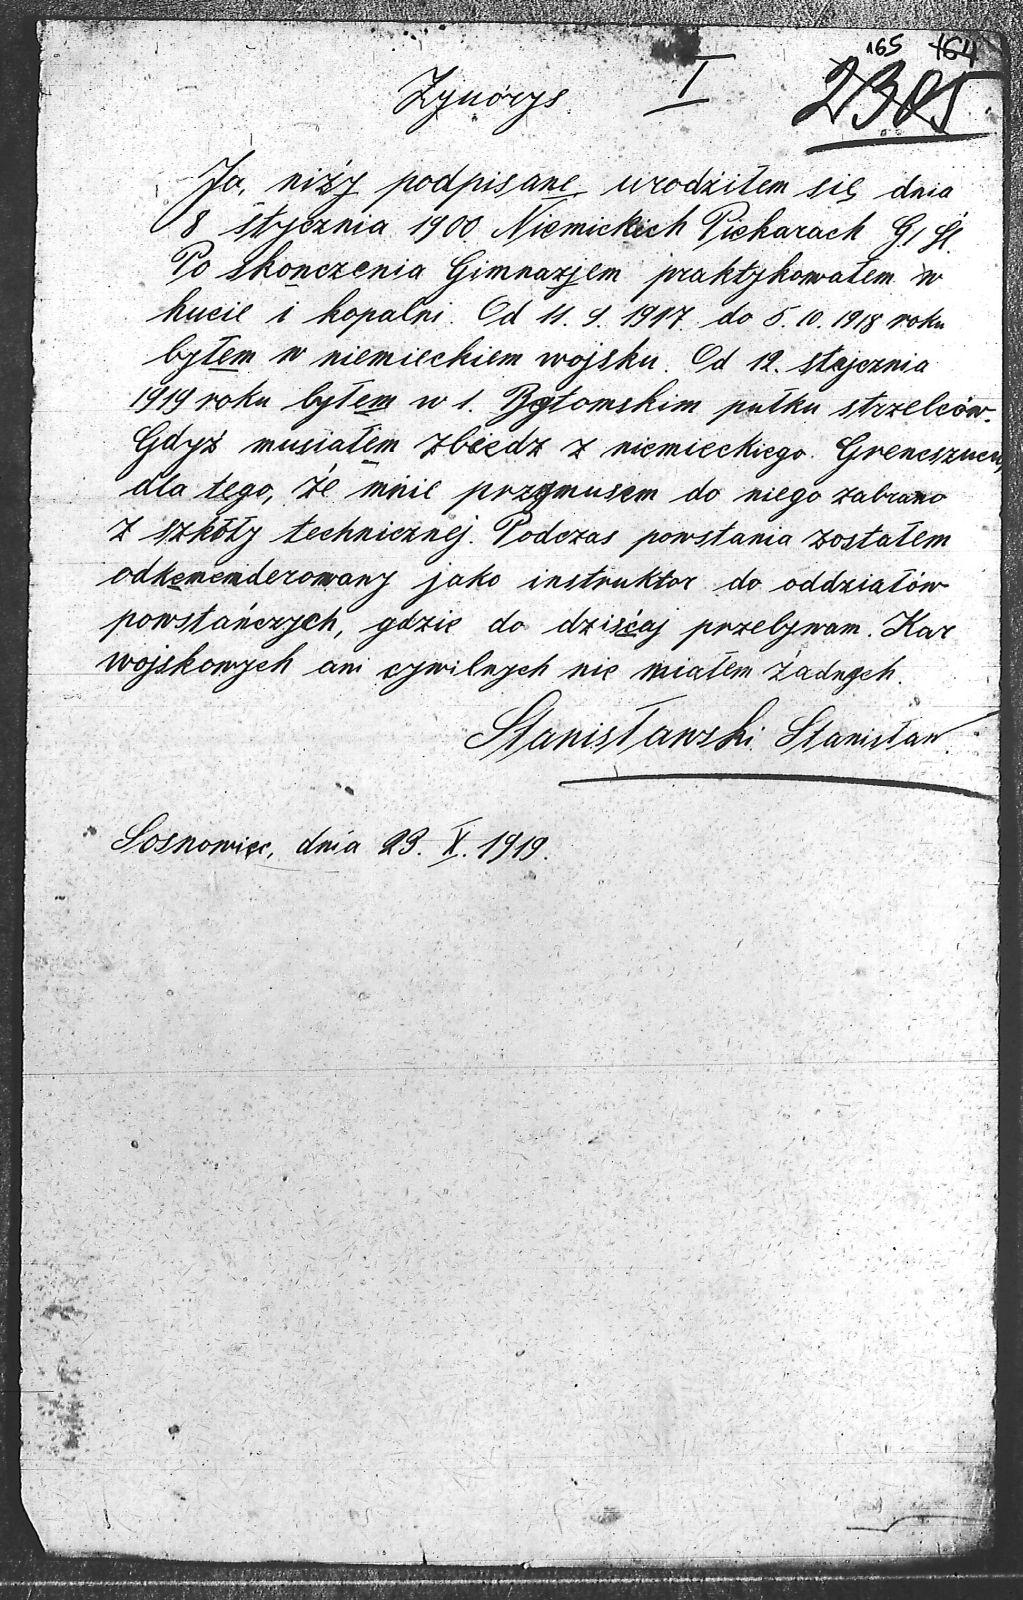 165 164
I 2305
Zynórys
Ja, niży podpisane urodziłem się dnia
8 stycznia 1900 Niemickich Piekarach G/Śl.
Po skonczenia Gimnazjem praktykowałem w
hucie i kopalni. Od 11. 9. 1917 do 5. 10. 1918 roku
byłem w niemieckiem wojsku. Od 12. stycznia
1919 roku byłem w 1. Bytomskim pułku strzelców.
Gdyż musiałem zbiedz z niemieckiego Grencszucu,
dla tego, że mnie przymusem do niego zabrano
z szkóły technicznej. Podczas powstania zostałem
odkemenderowany jako instruktor do oddziałów
powstańczych, gdzie do dziścaj przebywam. Kar
wojskowych ani cywilnych nie miałem żadnych.
Stanisławski Stanisław
Sosnowiec, dnia 23. X. 1919.